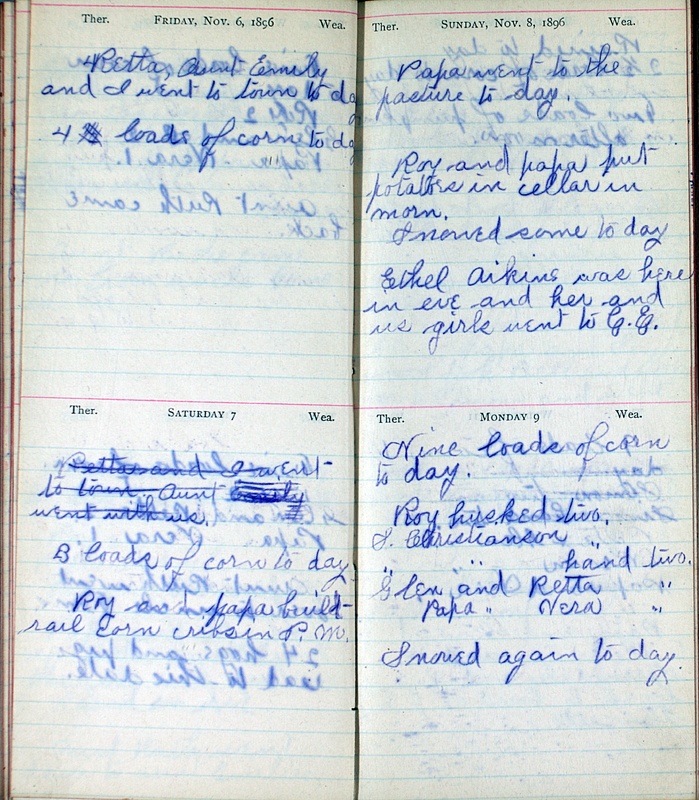 Ther. FRIDAY, NOV. 6, 1896 Wea.
Retta, Aunt Emily
and I went to town to da
4 loads of corn to da
Ther. SATURDAY 7 Wea.
Retta and I went
to town. Aunt Emily
went with us.
3 loads of corn to day
Roy and papa build
rail corn cribs in P.M.
Ther. SUNDAY, NOV. 8, 1896 Wea.
Papa went to the
pasture to day.
Roy and papa put
potatoes in cellar in
morn.
Snowed some to day
Ethel Aikins was here
in eve and her and
us girls went to C.E.
Ther. MONDAY 9 Wea.
Nine loads of corn
to day.
Roy husked two.
S. Christianson "
" " hand two.
Glen and Retta "
Papa " Vera "
Snowed again to day.